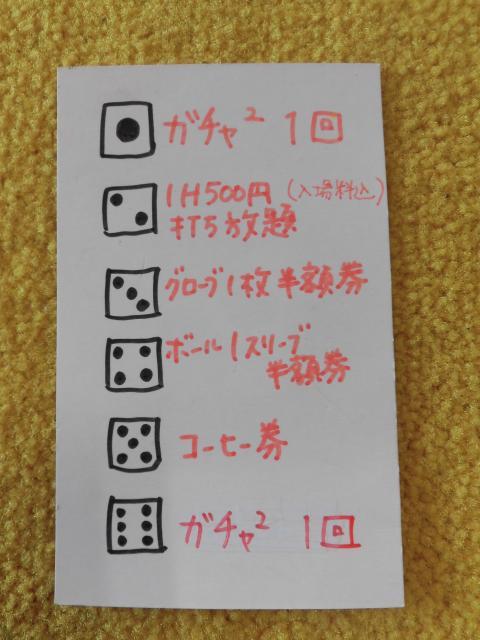 ガチャ² 1回
1H500円(入場料込)
打ち放題
グローブ1枚半額券
ボール1スリーブ
半額券
コーヒー券
ガチャ² 1回